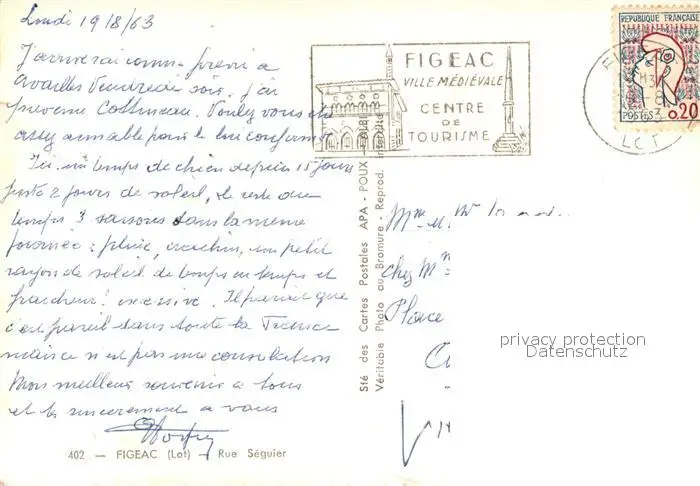 Lundi 19/8/63
J'arriverai comme prévu a
Availles Vendredi soir. J'ai
prévenu Voulez vous être
assez aimable pour le lui confirmer
Ici un temps de chien depuis 15 jours
juste 2 jours de soleil, le reste du
temps 3 saisons dans la même
journée : pluie, crachin, un petit
rayon de soleil de temps en temps et
fraicheur ! excessive. Il parait que
c'est pareil dans toute la France
mais ce n'est pas une consolation
Mon meilleur souvenir a tous
et bien sincerement a vous
402 — FIGEAC (Lot) — Rue Séguier
FIGEAC
VILLE MÉDIÉVALE
CENTRE
DE
TOURISME
REPUBLIQUE FRANÇAISE
POSTES 0,20
LOT
Sté des Cartes Postales APA - POUX
Véritable Photo au Bromure - Reprod. interdite
Mme M.
chez Mme
Place
privacy protection
Datenschutz